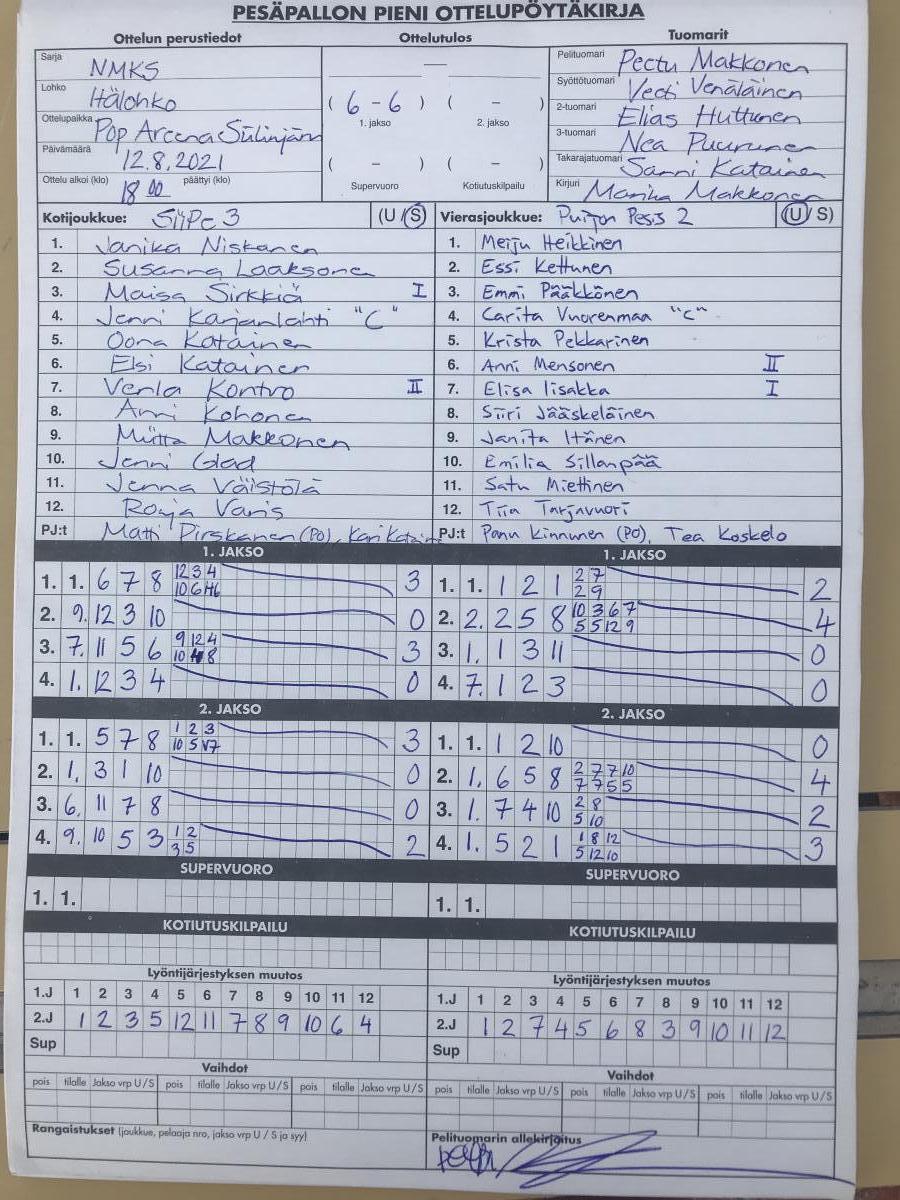 PESÄPALLON PIENI OTTELUPÖYTÄKIRJA
Ottelun perustiedot Ottelutulos Tuomarit
Sarja NMKS
Lohko
Ottelupaikka Pop Areena
Päivämäärä 12.8.2021
Ottelu alkoi (klo) 18 00 päättyi (klo)
( 6 - 6 ) ( - )
1. jakso 2. jakso
( - ) ( - )
Supervuoro Kotiutuskilpailu
Pelituomari Makkonen
Syöttötuomari Venäläinen
2-tuomari Elias Huttunen
3-tuomari Nea Puurunen
Takarajatuomari Sanni Katainen
Kirjuri Marika Makkonen
Kotijoukkue: SiiPe 3 (U/S)
1. Janika Niskanen
2. Susanna Laaksone
3. Maisa Sirkkiä I
4. Jenni Karjanlahti "C"
5. Oona Katainen
6. Elsi Katainen
7. Venla Kontro II
8. Anni Kohonen
9. Miitta Makkonen
10. Jenni Glad
11. Jenna Väistölä
12. Ronja Varis
PJ:t Matti Pirskanen (PO), Kari
Vierasjoukkue: Puijon Pesis 2 (U/S)
1. Meiju Heikkinen
2. Essi Kettunen
3. Emmi Pääkkönen
4. Carita Vuorenmaa "C"
5. Krista Pekkarinen
6. Anni Mensonen II
7. Elisa Iisakka I
8. Siiri Jääskeläinen
9. Janita Itänen
10. Emilia Sillanpää
11. Satu Miettinen
12. Tiia Tarjavuori
PJ:t Panu Kinnunen (PO), Tea Koskelo
1. JAKSO
1. 1. 6 7 8 12 3 4 3
10 6
2. 9. 12 3 10 0
3. 7. 11 5 6 9 12 4 3
10 8
4. 1. 12 3 4 0
1. JAKSO
1. 1. 1 2 1 2 7 2
2 9
2. 2. 2 5 8 10 3 6 7 4
5 5 12 9
3. 1. 1 3 11 0
4. 7. 1 2 3 0
2. JAKSO
1. 1. 5 7 8 1 2 3 3
10 5
2. 1. 3 1 10 0
3. 6. 11 7 8 0
4. 9. 10 5 3 1 2 2
3 5
2. JAKSO
1. 1. 1 2 10 0
2. 1. 6 5 8 2 7 7 10 4
7 7 5 5
3. 1. 7 4 10 2 8 2
5 10
4. 1. 5 2 1 1 8 12 3
5 12 10
SUPERVUORO SUPERVUORO
1. 1. 1. 1.
KOTIUTUSKILPAILU KOTIUTUSKILPAILU
Lyöntijärjestyksen muutos Lyöntijärjestyksen muutos
1.J 1 2 3 4 5 6 7 8 9 10 11 12 1.J 1 2 3 4 5 6 7 8 9 10 11 12
2.J 1 2 3 5 12 11 7 8 9 10 6 4 2.J 1 2 7 4 5 6 8 3 9 10 11 12
Sup Sup
Vaihdot Vaihdot
pois tilalle Jakso vrp U/S pois tilalle Jakso vrp U/S pois tilalle Jakso vrp U/S pois tilalle Jakso vrp U/S pois tilalle Jakso vrp U/S pois tilalle Jakso vrp U/S
Rangaistukset (joukkue, pelaaja nro, jakso vrp U / S ja syy) Pelituomarin allekirjoitus